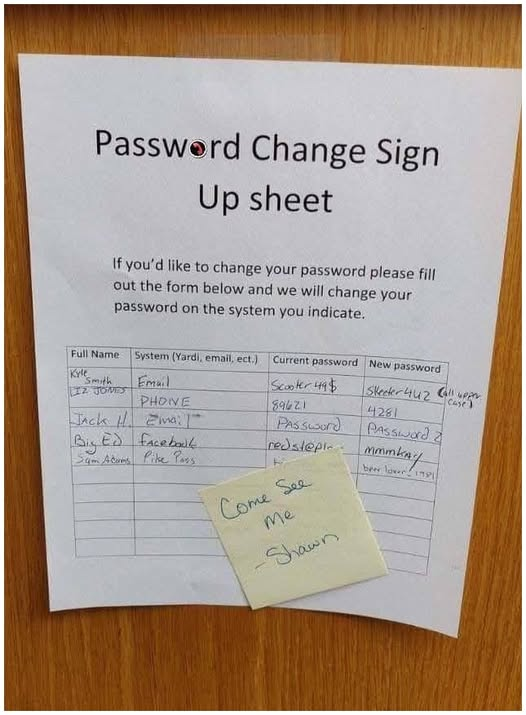 Password Change Sign
Up sheet
If you'd like to change your password please fill
out the form below and we will change your
password on the system you indicate.
Full Name System (Yardi, email, ect.) Current password New password
Kyle Smith Email Scooter49$ Skeeter4U2 (all upper case)
Liz Jones PHONE 89621 4281
Jack H. Email Password Password 2
Big Ed facebook mmmkay
Sam Adams Pike Pass beer lover
Come See
Me
- Shawn